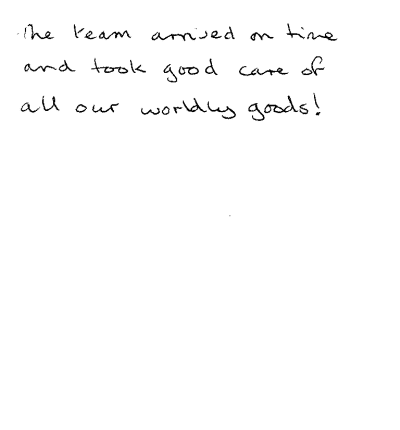 The team arrived on time
and took good care of
all our worldly goods!